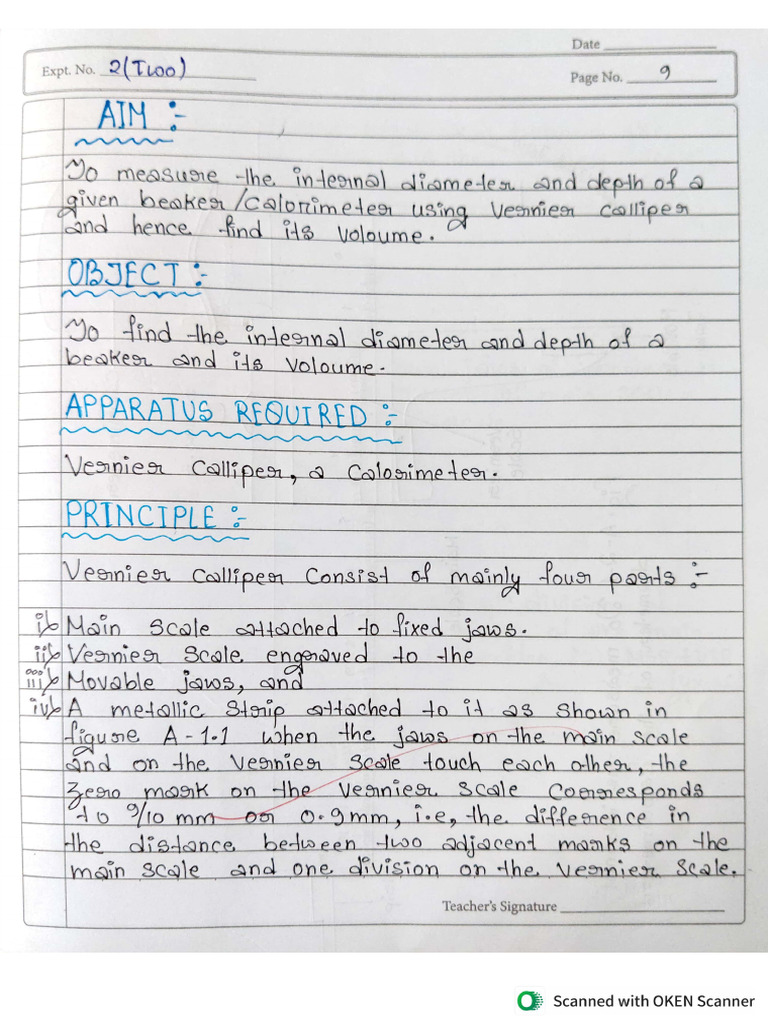 Date
Expt. No. 2(Two)
Page No. 9
AIM :-
To measure the internal diameter and depth of a
given beaker/calorimeter using Vernier Calliper
and hence find its voloume.
OBJECT :-
To find the internal diameter and depth of a
beaker and its voloume.
APPARATUS REQUIRED :-
Vernier Calliper, a Calorimeter.
PRINCIPLE :-
Vernier Calliper Consist of mainly four parts :-
i) Main Scale attached to fixed jaws.
ii) Vernier Scale engraved to the
iii) Movable jaws, and
iv) A metallic Strip attached to it as shown in
figure A-1.1 when the jaws on the main scale
and on the Vernier Scale touch each other, the
zero mark on the Vernier Scale Corresponds
to 9/10 mm or 0.9mm, i.e, the difference in
the distance between two adjacent marks on the
main scale and one division on the Vernier Scale.
Teacher's Signature
Scanned with OKEN Scanner